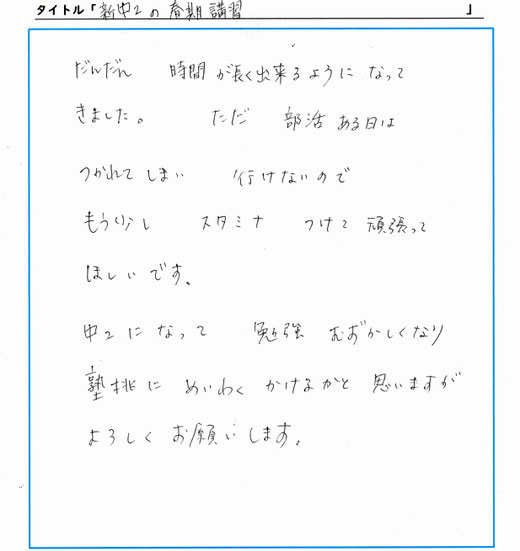 タイトル「新中2の春期講習」
だんだん 時間が長く出来るように なって
きました。 ただ 部活ある日は
つかれてしまい 行けないので
もう少し スタミナ つけて 頑張って
ほしいです。
中2になって 勉強 むずかしくなり
塾様に めいわくかけるかと思いますが
よろしくお願いします。